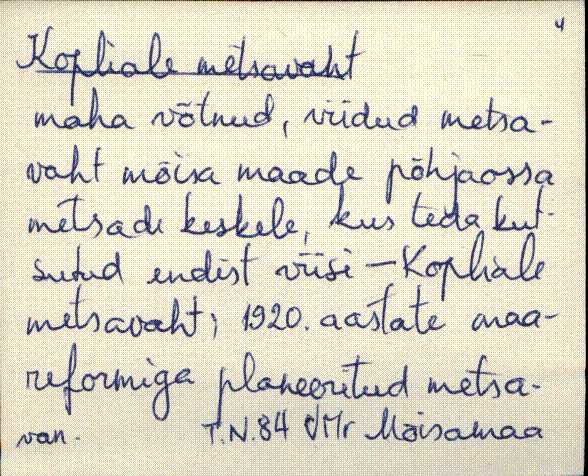 4
Kopliale metsavaht
maha võtnud, viidud metsa-
vaht mõisa maade põhjaossa
metsade keskele, kus teda kut-
sutud endist viisi – Kopliale
metsavaht; 1920. aastate maa-
reformiga planeeritud metsa-
van. T.N.84 VMr Mõisamaa